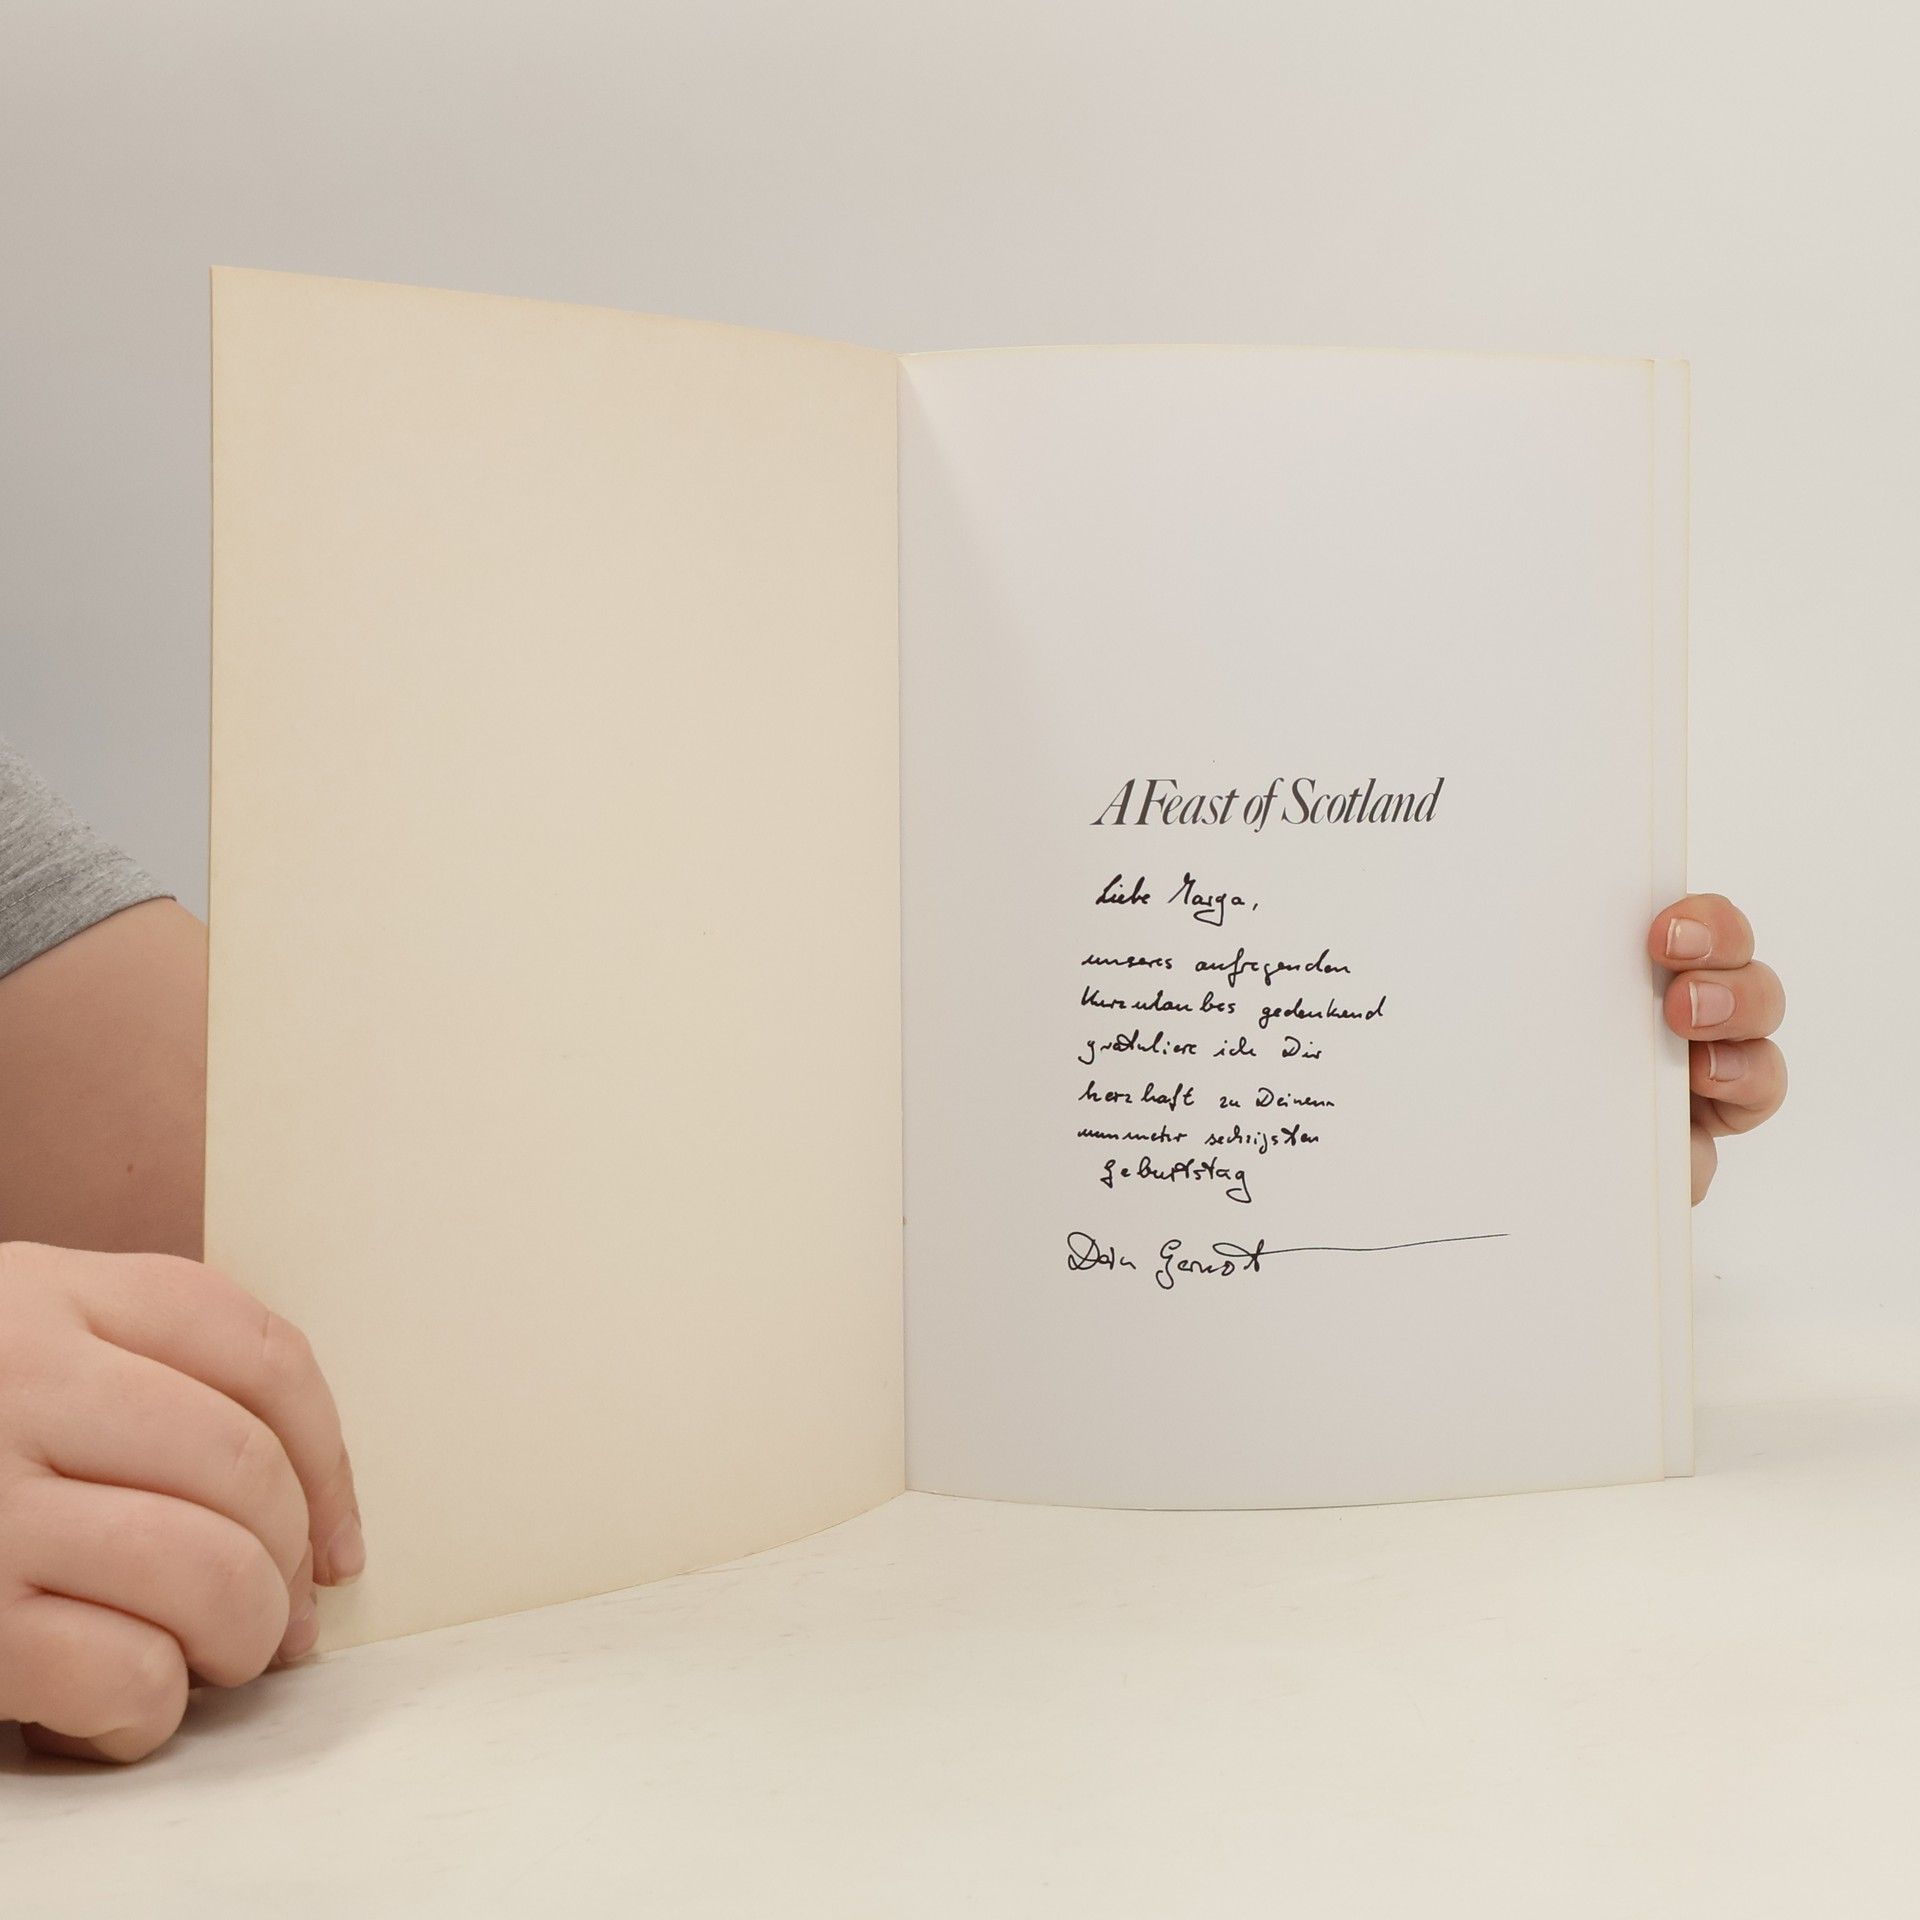 A Feast of Scotland
Liebe Marga,
unseres aufregenden
Kurzurlaubes gedenkend
gratuliere ich Dir
herzhaft zu Deinem
nunmehr sechzigsten
Geburtstag
Dein Gernot